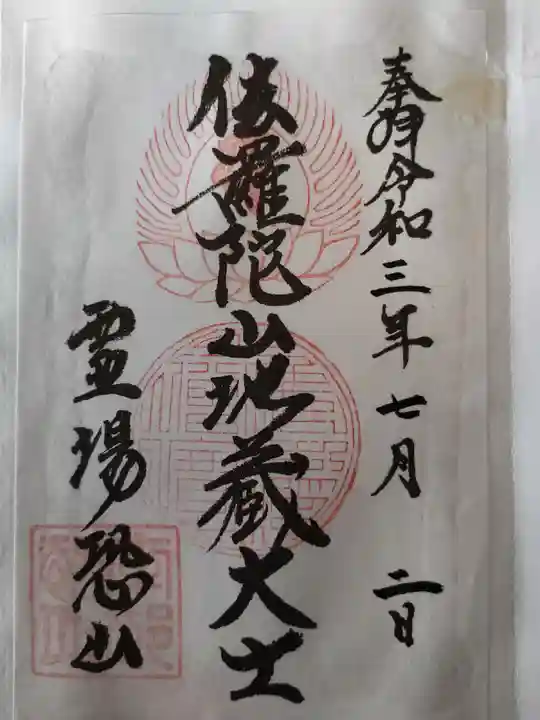 奉拝 令和三年七月二日
伽羅陀山地蔵大士
霊場恐山